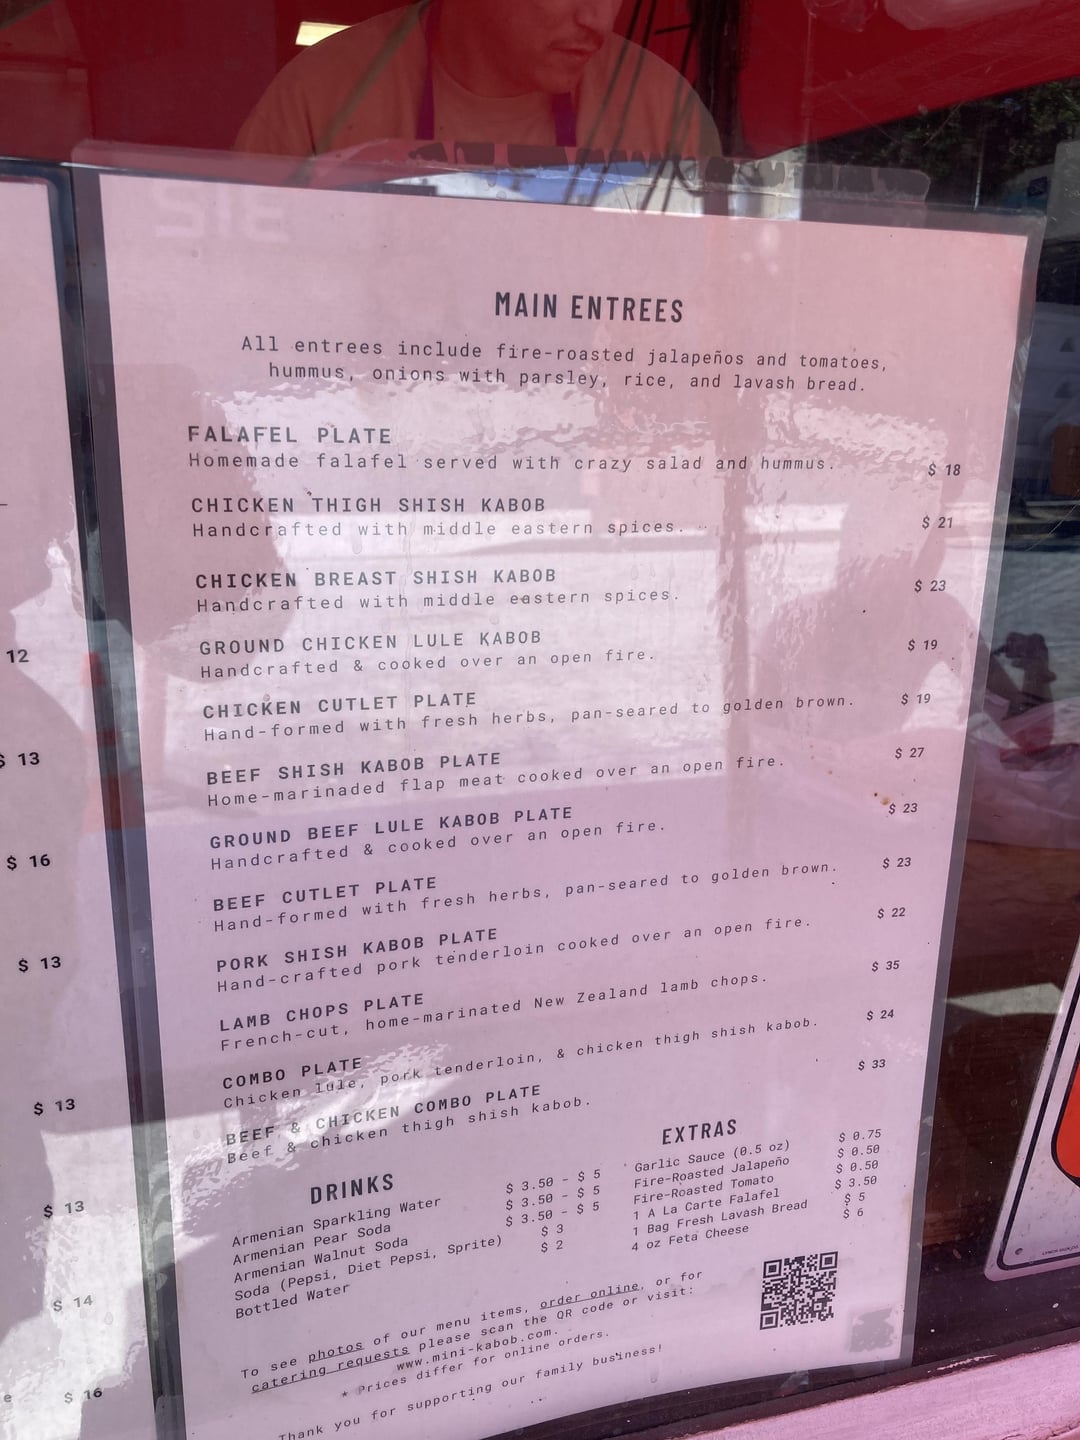 MAIN ENTREES
All entrees include fire-roasted jalapeños and tomatoes,
hummus, onions with parsley, rice, and lavash bread.
FALAFEL PLATE
Homemade falafel served with crazy salad and hummus. $ 18
CHICKEN THIGH SHISH KABOB
Handcrafted with middle eastern spices. $ 21
CHICKEN BREAST SHISH KABOB
Handcrafted with middle eastern spices. $ 23
GROUND CHICKEN LULE KABOB
Handcrafted & cooked over an open fire. $ 19
CHICKEN CUTLET PLATE
Hand-formed with fresh herbs, pan-seared to golden brown. $ 19
BEEF SHISH KABOB PLATE
Home-marinaded flap meat cooked over an open fire. $ 27
GROUND BEEF LULE KABOB PLATE
Handcrafted & cooked over an open fire. $ 23
BEEF CUTLET PLATE
Hand-formed with fresh herbs, pan-seared to golden brown. $ 23
PORK SHISH KABOB PLATE
Hand-crafted pork tenderloin cooked over an open fire. $ 22
LAMB CHOPS PLATE
French-cut, home-marinated New Zealand lamb chops. $ 35
COMBO PLATE
Chicken lule, pork tenderloin, & chicken thigh shish kabob. $ 24
BEEF & CHICKEN COMBO PLATE
Beef & chicken thigh shish kabob. $ 33
DRINKS
Armenian Sparkling Water $ 3.50 - $ 5
Armenian Pear Soda $ 3.50 - $ 5
Armenian Walnut Soda $ 3.50 - $ 5
Soda (Pepsi, Diet Pepsi, Sprite) $ 3
Bottled Water $ 2
EXTRAS
Garlic Sauce (0.5 oz) $ 0.75
Fire-Roasted Jalapeño $ 0.50
Fire-Roasted Tomato $ 0.50
1 A La Carte Falafel $ 3.50
1 Bag Fresh Lavash Bread $ 5
4 oz Feta Cheese $ 6
To see photos of our menu items, order online, or for
catering requests please scan the QR code or visit:
www.mini-kabob.com.
* Prices differ for online orders.
Thank you for supporting our family business!
12
$ 13
$ 16
$ 13
$ 13
$ 13
$ 14
$ 16